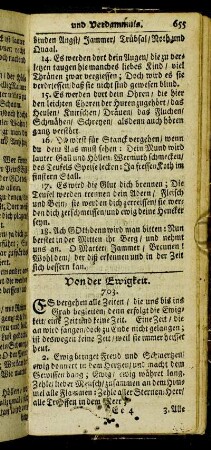 und Verdammniß. 655
finden Angst/ Jammer/ Trübsal/ Noth und
Quaal.
14. Es werden dort dein Augen/ die zu ver-
letzen taugen hie manches liebes Kind/ viel
Thränen zwar vergiessen; Doch wird es sie
verdriessen/ daß sie nicht sind gewesen blind.
15. Es werden dort dein Ohren/ die hier
den leichten Choren der Huren zugehört/ das
Heulen/ Knirschen/ Dräuen das Fluchen
Schmähen/ Schreyen/ also daß ihr Ohren
gantz versehrt.
16. Du wirst für Stanck vergehen/ wenn
du dein Aas must sehen: Dein Mund wird
lauter Gall und Höllen-Wermuth schmecken/
des Teufels Speise lecken: Ja fressen Koth im
finstern Stall.
17. Es wird die Glut dich brennen: Die
Teufel werden trennen dein Adern/ Fleisch
und Bein/ sie werden dich zerreissen/ sie wer-
den dich zerschmeissen/ und ewig deine Hencker
seyn.
18. Ach Gott! denn wird man bitten: Nun
berstet in der Mitten ihr Berg/ und nehmt
uns an. O Marter! Jammer/ Brennen!
Wohl dem/ der diß erkennen und in der Zeit
sich bessern kan.
Von der Ewigkeit.
703.
Es vergehen alle Zeiten/ die uns bis ins
Grab begleiten, denn erfolgt die Ewig-
keit/ eine Zeit und keine Zeit. Eine Zeit/ die
an wird fangen/ doch zu Ende nicht gelangen;
ist deswegen keine Zeit/ weil sie immer herfür
heut.
2. Ewig bringet Freud und Schmertzen/
ewig donnert in dem Hertzen/ und macht dem
Gewissen bang; Ewig/ ewig währet lang.
Zehle/ lieber Mensch/ zusammen an dem Himmel
alle Flammen: Zehle aller Sternen Heer/
alle Tropffen in dem Meer:
Ee 4 3. Alle